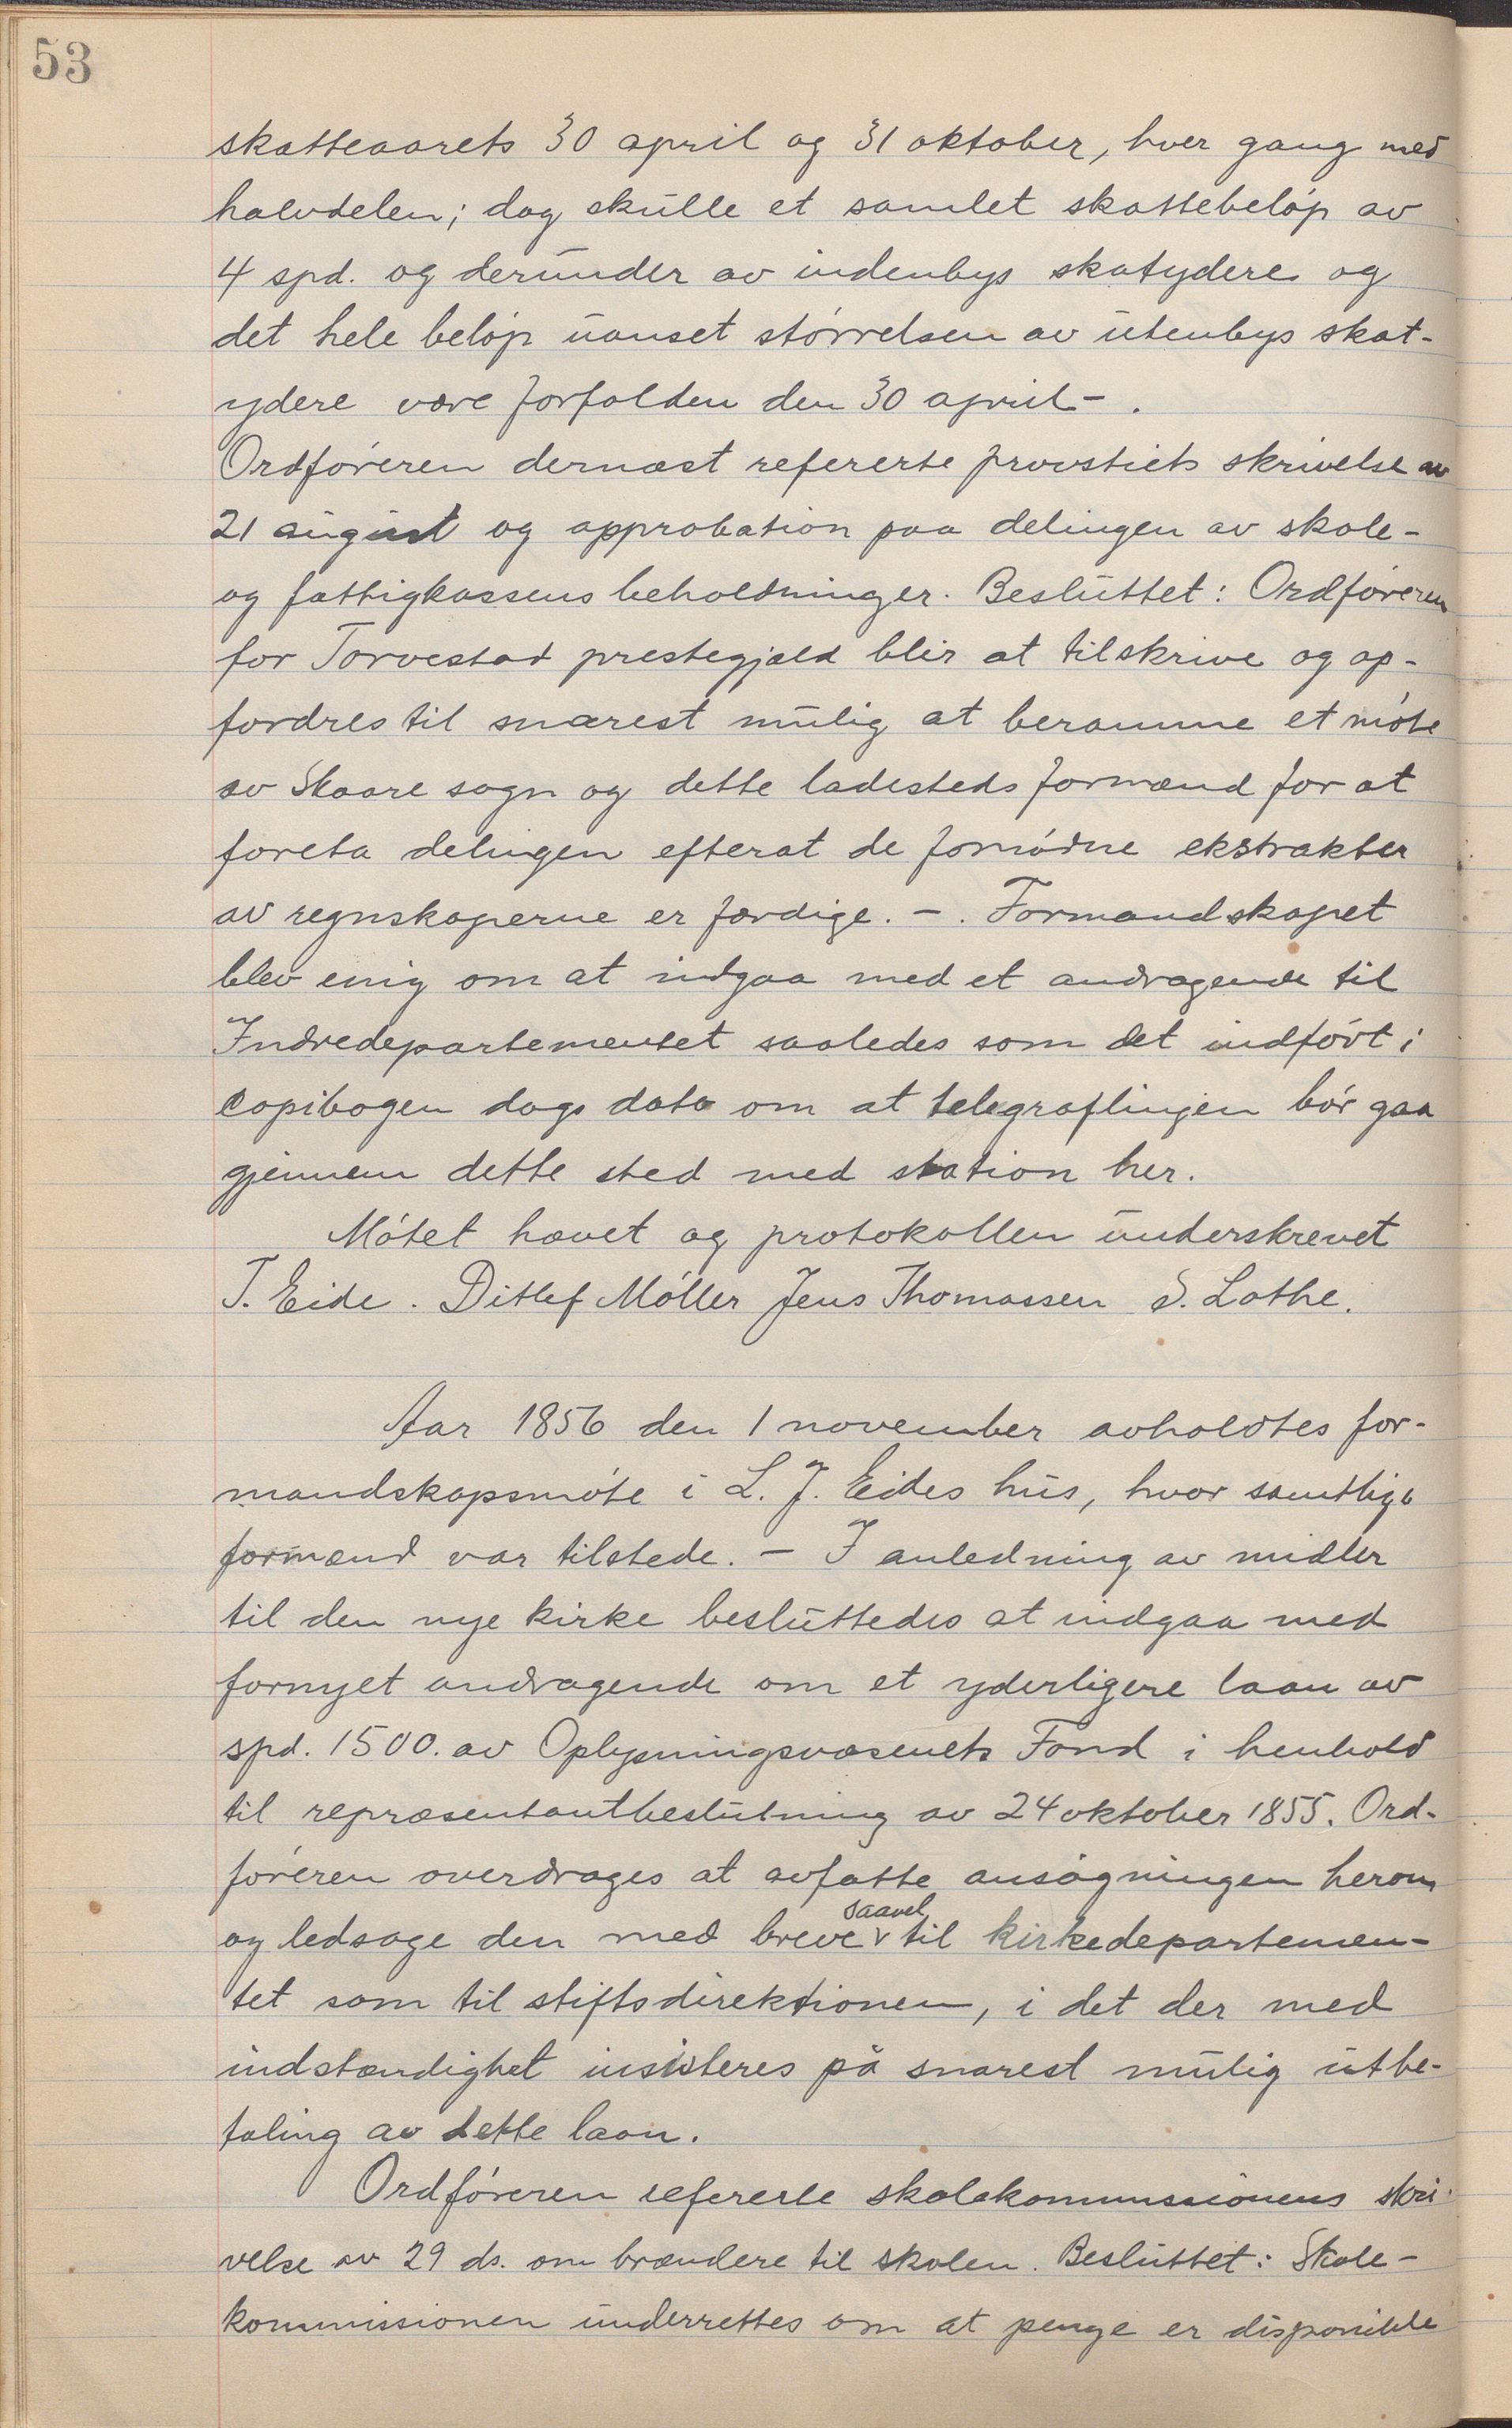 53
skatteaarets 30 april og 31 oktober, hver gang med
halvdelen; dog skulle et samlet skattebeløp av
4 spd. og derunder av indenbys skatydere og
det hele beløp uanset størrelsen av utenbys skat-
ydere være forfalden den 30 april - .
Ordføreren dernæst refererte provstiets skrivelse av
21 august og approbation paa delingen av skole-
og fattigkassens beholdninger. Besluttet: Ordføreren
for Torvestad prestegjæld blir at tilskrive og op-
fordres til snarest mulig at beramme et møte
av Skaare sogn og dette ladesteds formænd for at
foreta delingen efterat de fornødne ekstrakter
av regnskaperne er færdige. - . Formandskapet
blev enig om at indgaa med et andragende til
Indredepartementet saaledes som det indført i
Copibogen dags dato om at telegraflinjen bør gaa
gjennem dette sted med station her.
Møtet hævet og protokollen underskrevet
T. Eide. Ditlef Møller Jens Thomassen S. Lothe.
Aar 1856 den 1 november avholdtes for-
mandskapsmøte i L. J. Eides hus, hvor samtlige
formænd var tilstede. - I anledning av midler
til den nye kirke besluttedes at indgaa med
fornyet andragende om et yderligere laan av
spd. 1500. av Oplysningsvæsenets Fond i henhold
til repræsentantbeslutning av 24 oktober 1855. Ord-
føreren overdrages at avfatte ansøgningen herom
og ledsage den med breve saavel til kirkedepartemen-
tet som til stiftsdirektionen, i det der med
indstændighet insisteres på snarest mulig utbe-
taling av dette laan.
Ordføreren refererte skolekommissionens skri-
velse av 29 ds. om brændere til skolen. Besluttet: Skole-
kommissionen underrettes om at penge er disponible